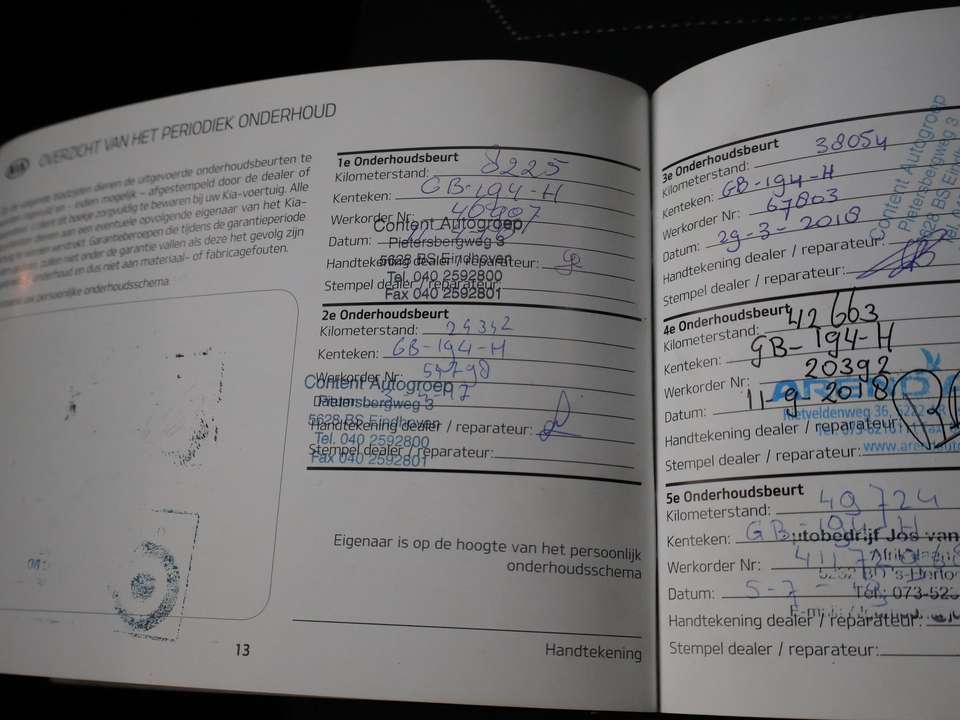 KIA OVERZICHT VAN HET PERIODIEK ONDERHOUD
dienen de uitgevoerde onderhoudsbeurten te
indien mogelijk – afgestempeld door de dealer of
dit boekje zorgvuldig te bewaren bij uw Kia-voertuig. Alle
dienen aan een eventuele opvolgende eigenaar van het Kia-
verstrekt. Garantieberoepen die tijdens de garantieperiode
zullen niet onder de garantie vallen als deze het gevolg zijn
onderhoud en dus niet aan materiaal- of fabricagefouten.
persoonlijke onderhoudsschema
1e Onderhoudsbeurt
Kilometerstand: 8225
Kenteken: GB-194-H
Werkorder Nr: 46907
Content Autogroep
Datum:
Pietersbergweg 3
Handtekening dealer / reparateur:
5628 BS Eindhoven
Tel. 040 2592800
Stempel dealer / reparateur:
Fax 040 2592801
2e Onderhoudsbeurt
Kilometerstand: 24342
Kenteken: GB-194-H
Werkorder Nr: 54798
Content Autogroep
Datum:
Pietersbergweg 3
5628 BS Eindhoven
Handtekening dealer / reparateur:
Tel. 040 2592800
Stempel dealer / reparateur:
Fax 040 2592801
Eigenaar is op de hoogte van het persoonlijk
onderhoudsschema
13
Handtekening
3e Onderhoudsbeurt
Kilometerstand: 38054
Kenteken: GB-194-H
Werkorder Nr: 67803
Datum: 29-3-2018
Handtekening dealer / reparateur:
Stempel dealer / reparateur:
Content Autogroep
Pietersbergweg 3
5628 BS Eindhoven
4e Onderhoudsbeurt
Kilometerstand: 42663
Kenteken: GB-194-H
Werkorder Nr: 20392
Datum: 11-9-2018
Rietveldenweg 36, 5222
Handtekening dealer / reparateur:
Stempel dealer / reparateur:
5e Onderhoudsbeurt
Kilometerstand: 49724
Kenteken: GB-194-H
Autobedrijf Jos van
Werkorder Nr:
Datum: 5-7-
Tel.: 073-523
Handtekening dealer / reparateur:
Stempel dealer / reparateur: